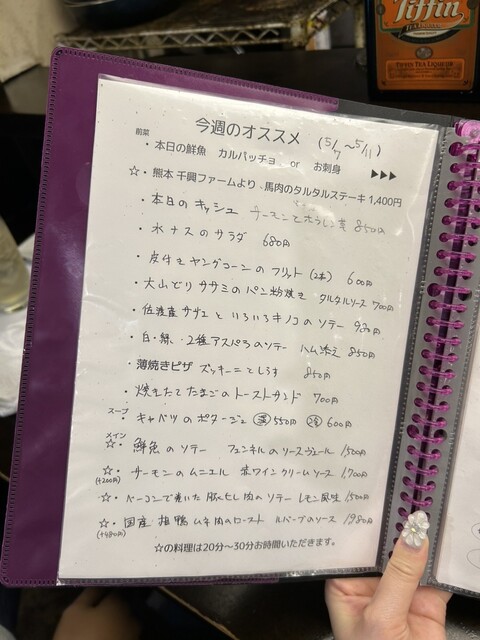 Tiffin
TEA LIQUEUR
今週のオススメ (5/7〜5/11)
前菜
・本日の鮮魚 カルパッチョ or お刺身 ▶▶▶
☆・熊本 千興ファームより、馬肉のタルタルステーキ 1,400円
・本日のキッシュ サーモンとホウレン草 850円
・水ナスのサラダ 680円
・皮付きヤングコーンのフリット(2本) 600円
・大山どりササミのパン粉焼き タルタルソース 700円
・佐渡産サザエといろいろキノコのソテー 980円
・白・緑 2種アスパラのソテー ハム添え 850円
・薄焼きピザ ズッキーニとしらす 850円
・焼きたてたまごのトーストサンド 700円
スープ
・キャベツのポタージュ 温 550円 冷 600円
メイン
☆・鮮魚のソテー フェンネルのソースヴェール 1,500円
☆・サーモンのムニエル 赤ワインクリームソース 1,700円
(+200円)
☆・ベーコンで巻いた豚ヒレ肉のソテー レモン風味 1,500円
☆・国産 相鴨ムネ肉のロースト ルバーブのソース 1980円
(+480円)
☆の料理は20分〜30分お時間いただきます。